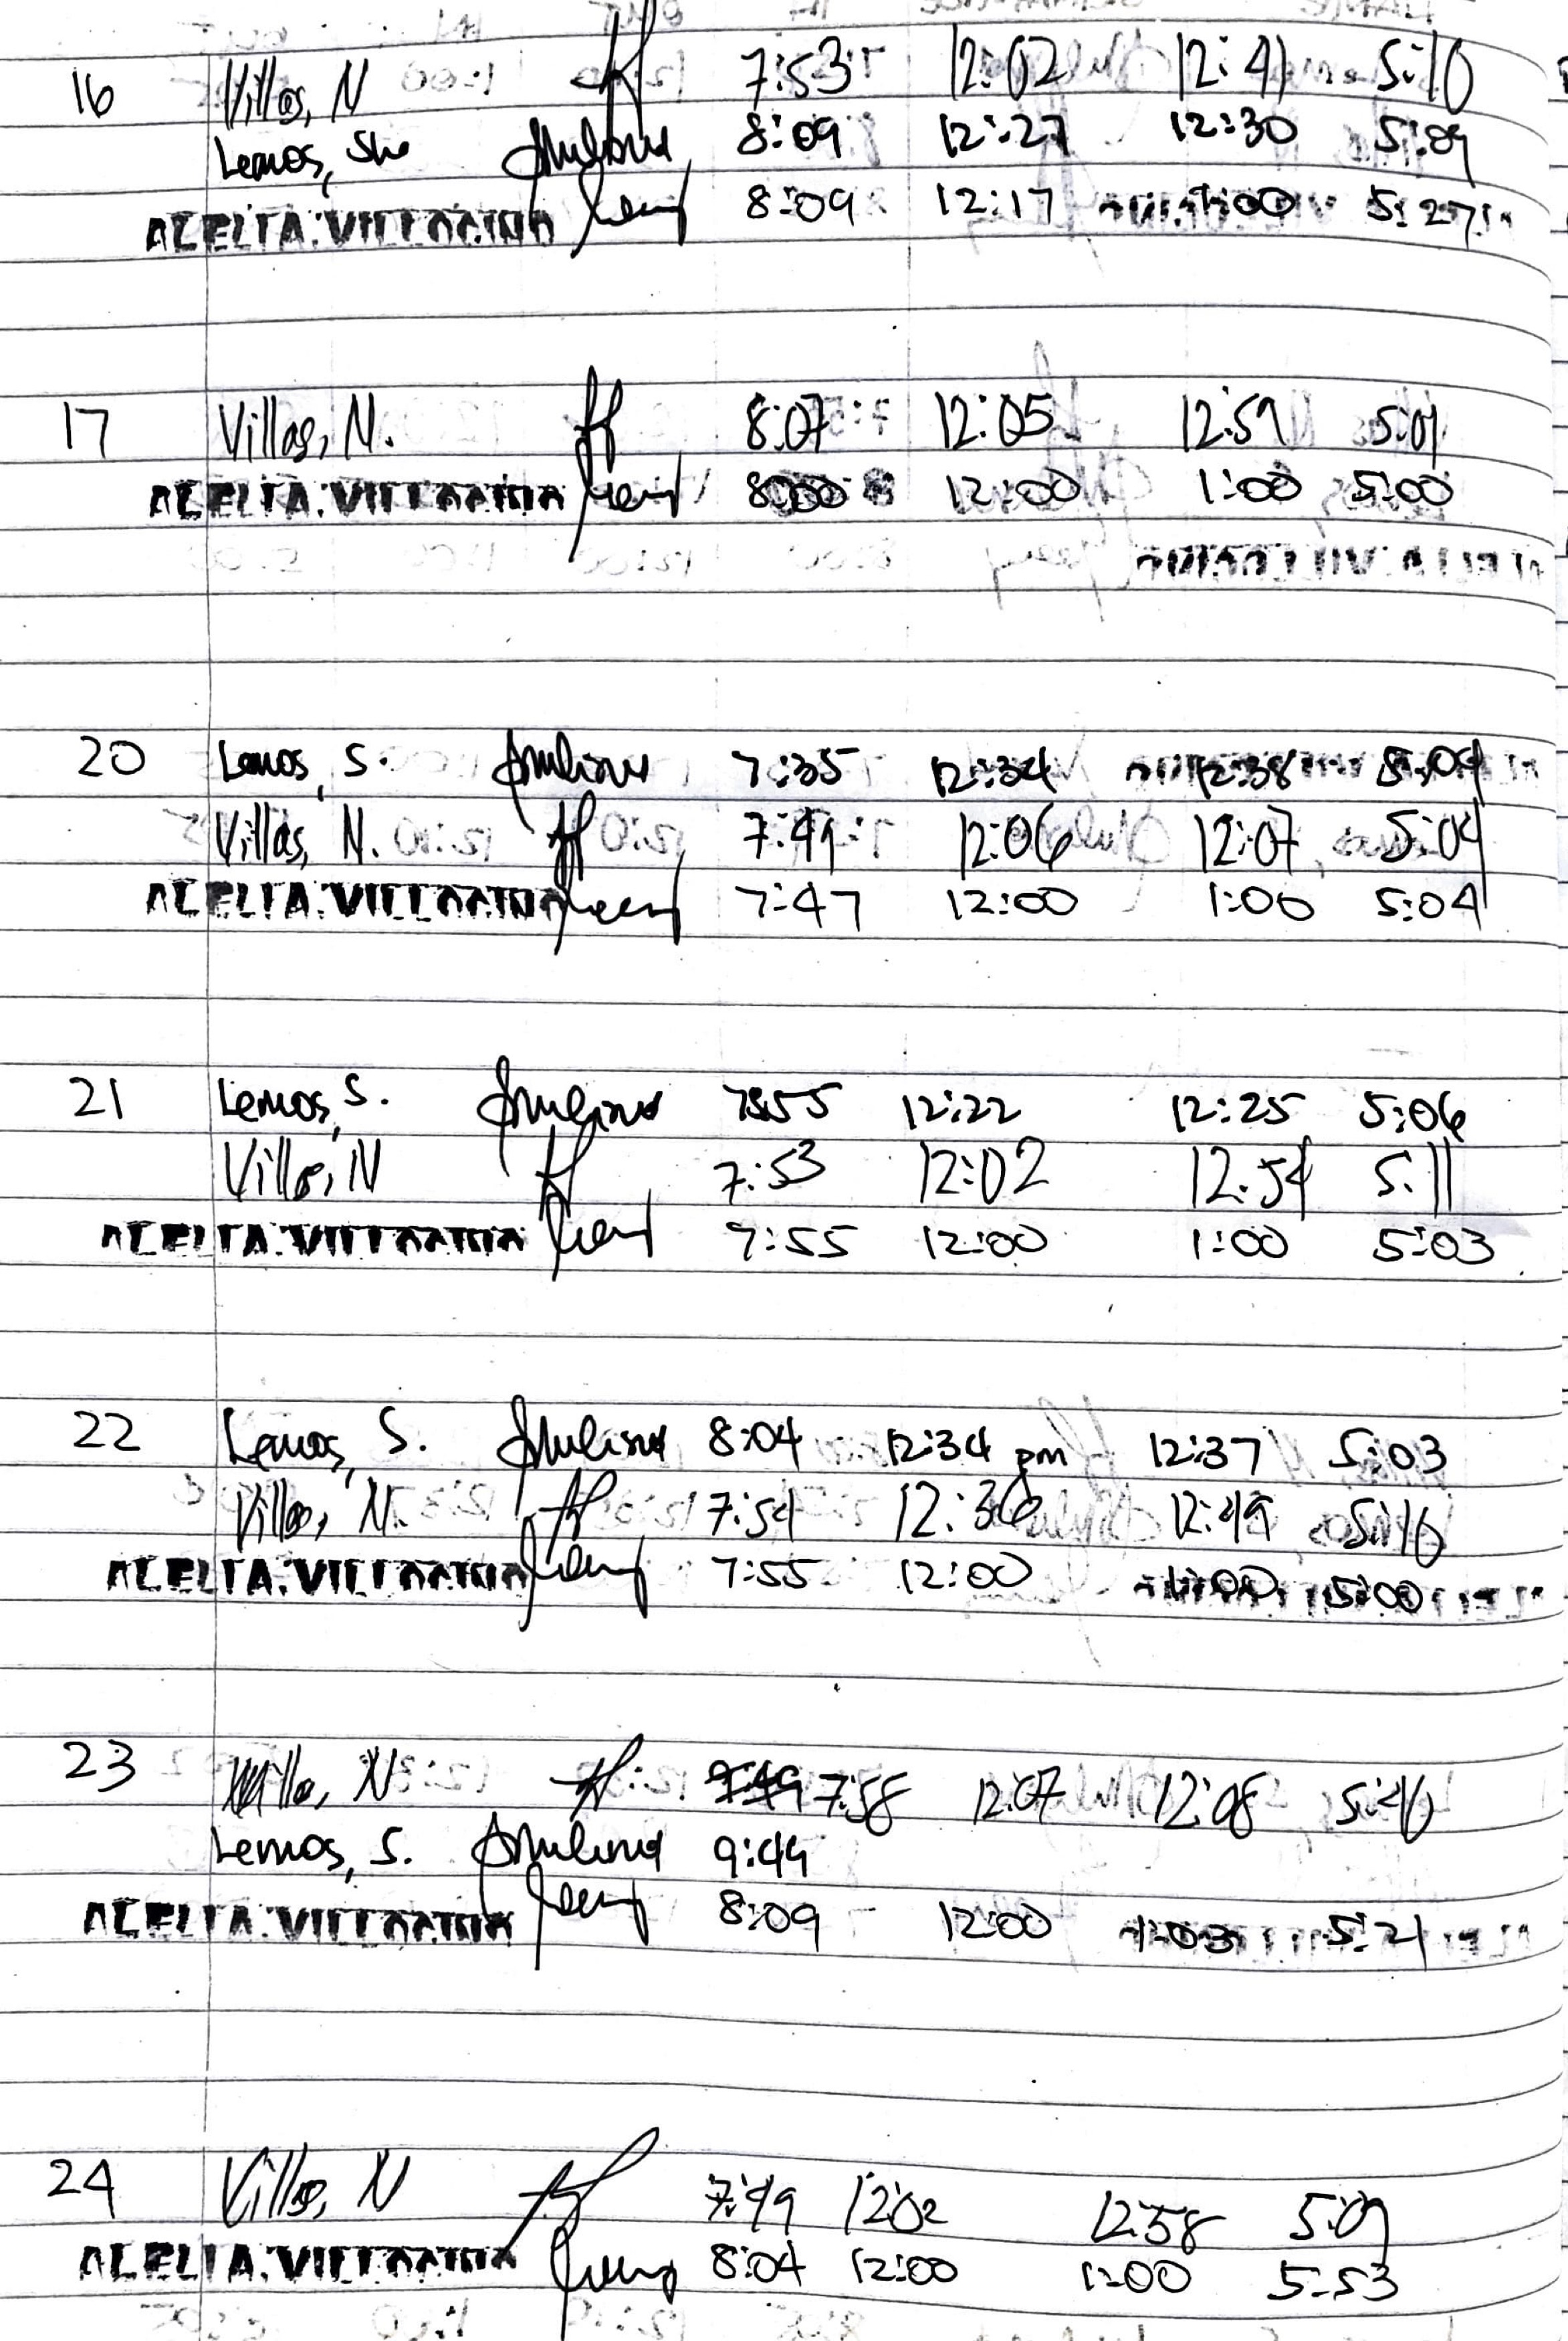 16 Villas, N 7:53 12:02 12:41 5:10
Lemos, She 8:09 12:27 12:30 5:09
8:09 12:17 1:00 5:27
17 Villas, N. 8:07 12:05 12:59 5:01
8:00 12:00 1:00 5:00
20 Lemos, S. 7:35 12:34 12:38 5:04
Villas, N. 7:49 12:06 12:07 5:04
7:47 12:00 1:00 5:04
21 Lemos, S. 7:55 12:22 12:25 5:06
Villas, N 7:53 12:02 12:54 5:11
7:55 12:00 1:00 5:03
22 Lemos, S. 8:04 12:34 pm 12:37 5:03
Villas, N. 7:54 12:36 12:49 5:16
7:55 12:00 1:00 5:00
23 Villas, N 7:58 12:07 12:08
Lemos, S. 9:44
8:09 12:00 1:03 5:21
24 Villas, N 7:49 12:02 12:58 5:09
8:04 12:00 1:00 5:53